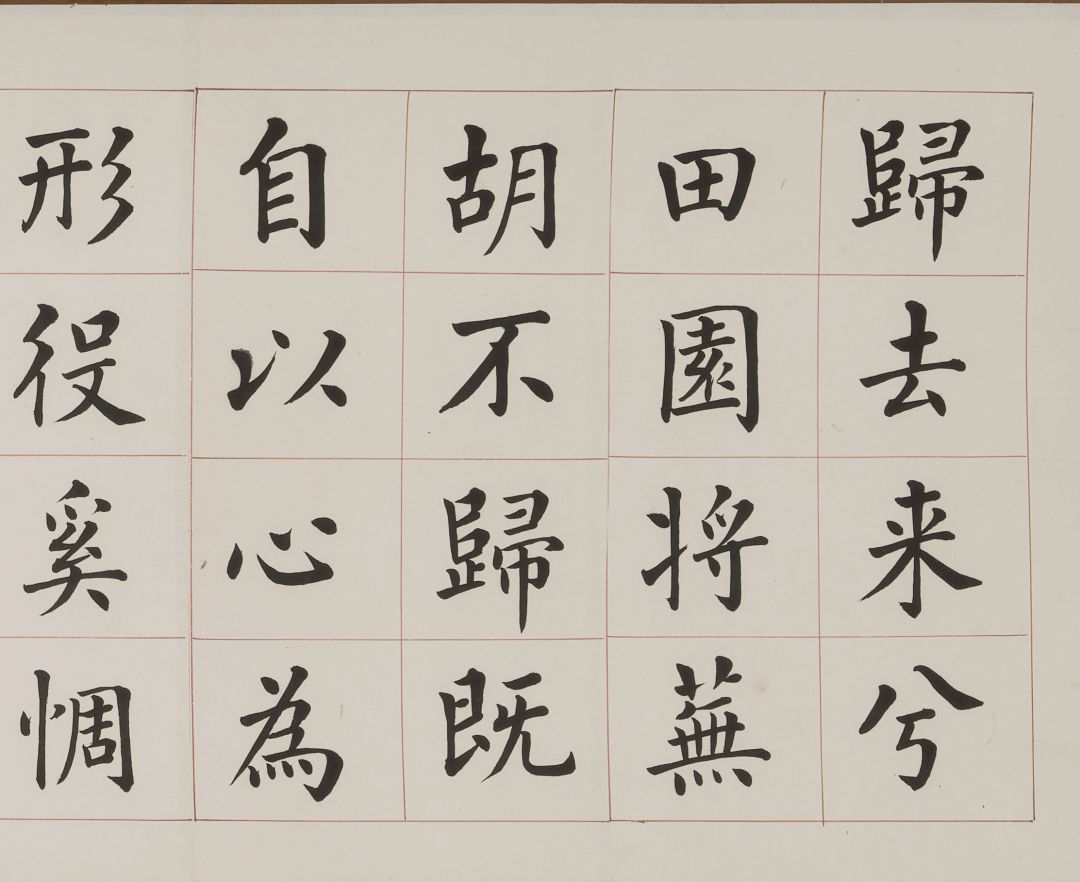 歸去来兮
田園将蕪
胡不歸既
自以心為
形役奚惆